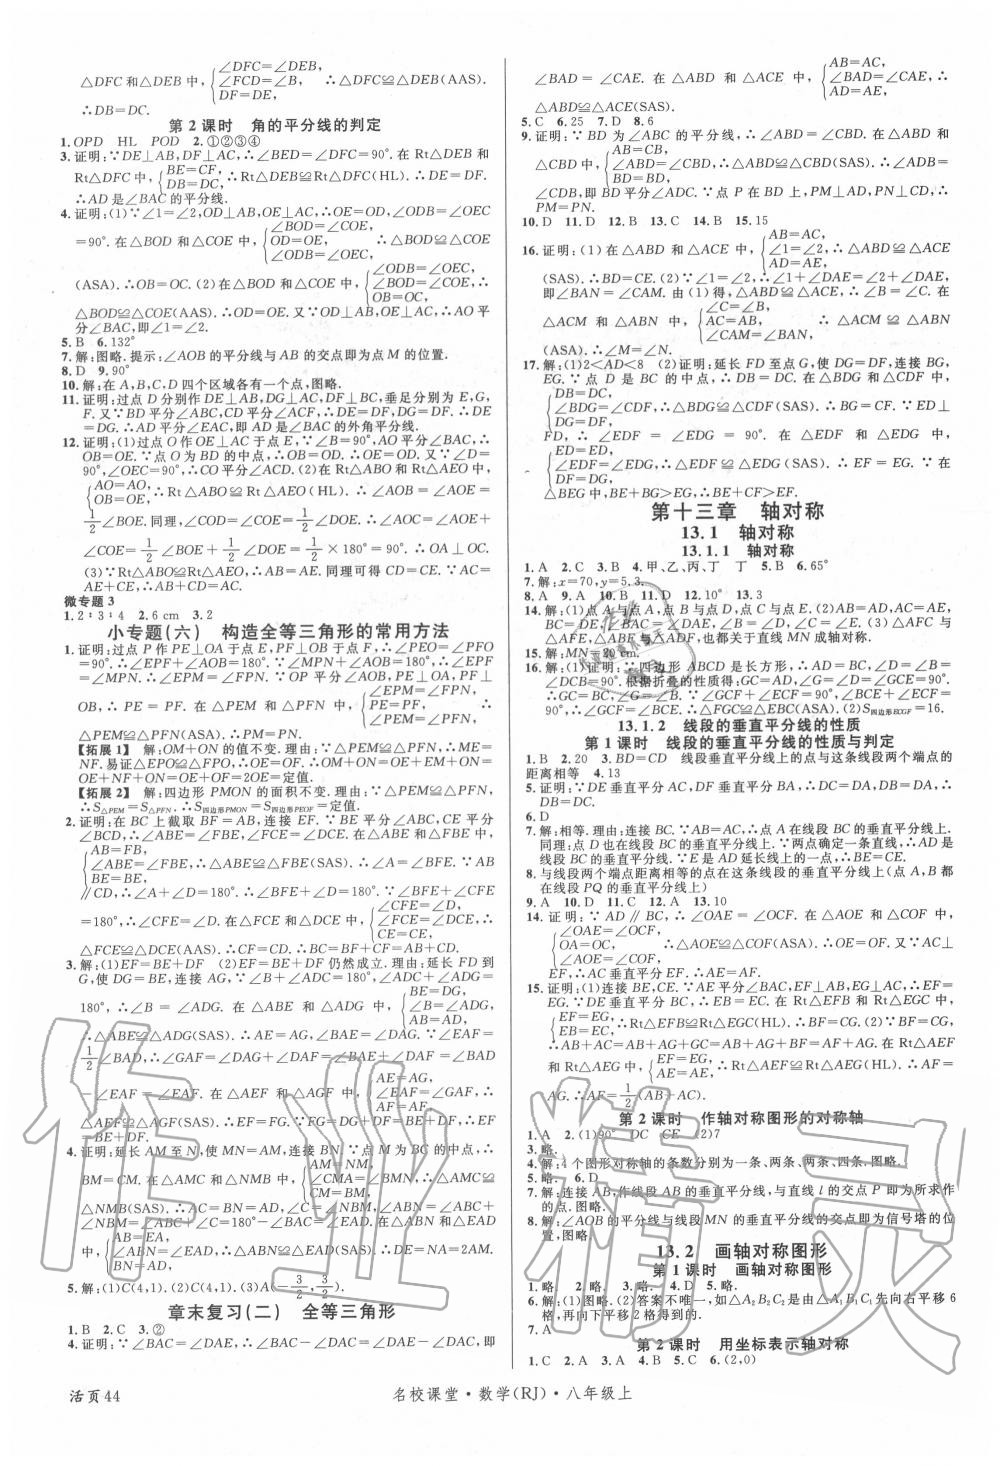 ∠DFC=∠DEB,
△DFC 和△DEB 中,{∠FCD=∠B, ∴△DFC≌△DEB(AAS).
DF=DE,
∴DB=DC.
第 2 课时 角的平分线的判定
1.OPD HL POD 2.①②③④
3.证明:∵DE⊥AB,DF⊥AC,∴∠BED=∠DFC=90°.在 Rt△DEB 和
Rt△DFC 中,{BE=CF,
DB=DC, ∴Rt△DEB≌Rt△DFC(HL).∴DE=DF.
∴AD 是∠BAC 的平分线.
4.证明:(1)∵∠1=∠2,OD⊥AB,OE⊥AC,∴OE=OD,∠ODB=∠OEC
∠BOD=∠COE,
=90°.在△BOD 和△COE 中,{OD=OE, ∴△BOD≌△COE
∠ODB=∠OEC,
∠ODB=∠OEC,
(ASA).∴OB=OC.(2)在△BOD 和△COE 中,{∠BOD=∠COE, ∴
OB=OC,
△BOD≌△COE(AAS).∴OD=OE.又∵OD⊥AB,OE⊥AC,∴AO 平
分∠BAC,即∠1=∠2.
5.B 6.132°
7.解:图略.提示:∠AOB 的平分线与 AB 的交点即为点 M 的位置.
8.D 9.90°
10.解:在 A,B,C,D 四个区域各有一个点,图略.
11.证明:过点 D 分别作 DE⊥AB,DG⊥AC,DF⊥BC,垂足分别为 E,G,
F.又∵BD 平分∠ABC,CD 平分∠ACF,∴DE=DF,DG=DF.∴DE
=DG.∴AD 平分∠EAC,即 AD 是∠BAC 的外角平分线.
12.证明:(1)过点 O 作 OE⊥AC 于点 E,∵∠B=90°,AO 平分∠BAC,∴
OB=OE.∵点 O 为 BD 的中点,∴OB=OD.∴OE=OD.又∵∠D=
90°,∠OEC=90°,∴CO 平分∠ACD.(2)在 Rt△ABO 和 Rt△AEO 中,
{AO=AO,
OB=OE, ∴Rt△ABO≌Rt△AEO(HL).∴∠AOB=∠AOE=
1/2∠BOE.同理,∠COD=∠COE=1/2∠DOE.∴∠AOC=∠AOE+
∠COE=1/2∠BOE+1/2∠DOE=1/2×180°=90°.∴OA⊥OC.
(3)∵Rt△ABO≌Rt△AEO,∴AB=AE.同理可得 CD=CE.∵AC=
AE+CE,∴AB+CD=AC.
微专题 3
1.2∶3∶4 2.6 cm 3.2
小专题(六) 构造全等三角形的常用方法
1.证明:过点 P 作 PE⊥OA 于点 E,PF⊥OB 于点 F,∴∠PEO=∠PFO
=90°.∴∠EPF+∠AOB=180°.∵∠MPN+∠AOB=180°,∴∠EPF
=∠MPN.∴∠EPM=∠FPN.∵OP 平分∠AOB,PE⊥OA,PF⊥
∠EPM=∠FPN,
OB,∴PE=PF.在△PEM 和△PFN 中,{PE=PF, ∴
∠PEM=∠PFN,
△PEM≌△PFN(ASA).∴PM=PN.
【拓展1】 解:OM+ON 的值不变.理由:∵△PEM≌△PFN,∴ME=
NF.易证△EPO≌△FPO,∴OE=OF.∴OM+ON=OM+ME+OF
=OE+OF=2OE=定值.
【拓展2】 解:四边形 PMON 的面积不变.理由:∵△PEM≌△PFN,
∴S△PEM=S△PFN.∴S四边形PMON=S四边形PEOF=定值.
2.证明:在 BC 上截取 BF=AB,连接 EF.∵BE 平分∠ABC,CE 平分
∠BCD,∴∠ABE=∠FBE,∠FCE=∠DCE.在△ABE 和△FBE 中,
{AB=FB,
∠ABE=∠FBE,∴△ABE≌△FBE(SAS).∴∠A=∠BFE.∵AB
BE=BE,
∥CD,∴∠A+∠D=180°.∴∠BFE+∠D=180°.∵∠BFE+∠CFE
∠CFE=∠D,
=180°,∴∠CFE=∠D.在△FCE 和△DCE 中,{∠FCE=∠DCE,∴
CE=CE,
△FCE≌△DCE(AAS).∴CF=CD.∴BC=BF+CF=AB+CD.
3.解:(1)EF=BE+DF (2)EF=BE+DF 仍然成立.理由:延长 FD 到
G,使 DG=BE,连接 AG,∵∠B+∠ADC=180°,∠ADC+∠ADG=
BE=DG,
180°,∴∠B=∠ADG.在△ABE 和△ADG 中,{∠B=∠ADG,
AB=AD,
∴△ABE≌△ADG(SAS).∴AE=AG,∠BAE=∠DAG.∵∠EAF=
1/2∠BAD,∴∠GAF=∠DAG+∠DAF=∠BAE+∠DAF=∠BAD
AE=AG,
−∠EAF=∠EAF.在△AEF 和△AGF 中,{∠EAF=∠GAF,∴
AF=AF,
△AEF≌△AGF(SAS).∴EF=GF.∵GF=DG+DF=BE+DF,∴
EF=BE+DF.
4.证明:延长 AM 至 N,使 MN=AM,连接 BN.∵点 M 为 BC 的中点,∴
AM=NM,
BM=CM.在△AMC 和△NMB 中,{∠AMC=∠NMB,∴△AMC≌
CM=BM,
△NMB(SAS).∴AC=BN=AD,∠C=∠NBM,∠ABN=∠ABC+
∠NBM=∠ABC+∠C=180°−∠BAC=∠EAD.在△ABN 和△EAD
中,{AB=EA,
∠ABN=∠EAD,∴△ABN≌△EAD(SAS).∴DE=NA=2AM.
BN=AD,
5.解:(1)C(4,1).(2)C(4,1).(3)A(−3/2,3/2).
章末复习(二) 全等三角形
1.B 2.C 3.②
4.证明:∵∠BAC=∠DAE,∴∠BAC−∠DAC=∠DAE−∠DAC,即
AB=AC,
∠BAD=∠CAE.在△ABD 和△ACE 中,{∠BAD=∠CAE,∴
AD=AE,
△ABD≌△ACE(SAS).
5.C 6.25 7.D 8.6
9.证明:∵BD 为∠ABC 的平分线,∴∠ABD=∠CBD.在△ABD 和
AB=CB,
△CBD 中,{∠ABD=∠CBD,∴△ABD≌△CBD(SAS).∴∠ADB=
BD=BD,
∠CDB,即 BD 平分∠ADC.∵点 P 在 BD 上,PM⊥AD,PN⊥CD,∴
PM=PN.
10.D 11.D 12.B 13.C 14.B 15.15
AB=AC,
16.证明:(1)在△ABD 和△ACE 中,{∠1=∠2,∴△ABD≌△ACE
AD=AE,
(SAS).∴BD=CE.(2)∵∠1=∠2,∴∠1+∠DAE=∠2+∠DAE,
即∠BAN=∠CAM.由(1)得,△ABD≌△ACE,∴∠B=∠C.在
∠C=∠B,
△ACM 和△ABN 中,{AC=AB, ∴△ACM≌△ABN
∠CAM=∠BAN,
(ASA).∴∠M=∠N.
17.解:(1)2<AD<8 (2)证明:延长 FD 至点 G,使 DG=DF,连接 BG,
EG.∵点 D 是 BC 的中点,∴DB=DC.在△BDG 和△CDF 中,
{DB=DC,
∠BDG=∠CDF,∴△BDG≌△CDF(SAS).∴BG=CF.∵ED⊥
DG=DF,
FD,∴∠EDF=∠EDG=90°.在△EDF 和△EDG 中,
{ED=ED,
∠EDF=∠EDG,∴△EDF≌△EDG(SAS).∴EF=EG.∵在
DF=DG,
△BEG 中,BE+BG>EG,∴BE+CF>EF.
第十三章 轴对称
13.1 轴对称
13.1.1 轴对称
1.A 2.C 3.B 4.甲、乙、丙、丁 丁 5.B 6.65°
7.解:x=70,y=5.3.
8.A 9.A 10.A 11.D 12.10° 13.3
14.解:(1)点 A 与点 A,点 B 与点 D,点 C 与点 E.
∠BAC=∠DAE,∠B=∠D,∠C=∠E. (3)∠EAF=∠CAF.∴△AEF 与
15.解:MN=20 cm.
16.解:(1)证明:∵四边形 ABCD 是长方形,∴AD=BC,∠D=∠B=
∠DCB=90°.根据折叠的性质得:GC=AD,∠G=∠D,∠GCE=90°.
∴GC=BC,∠G=∠B.∵∠GCF+∠ECF=90°,∠BCE+∠ECF=
90°,∴∠GCF=∠BCE.∴△FGC≌△EBC(ASA).(2)S四边形ECGF=16.
13.1.2 线段的垂直平分线的性质
第 1 课时 线段的垂直平分线的性质与判定
1.B 2.20 3.BD=CD 线段垂直平分线上的点与这条线段两个端点的
距离相等 4.13
5.证明:∵DE 垂直平分 AC,DF 垂直平分 BC,∴DC=DA,DC=DB.∴
DA=DB.
6.D
7.解:相等.理由:连接 BC.∵AB=AC,∴点 A 在线段 BC 的垂直平分线上.
同理:点 D 也在线段 BC 的垂直平分线上.∵两点确定一条直线,∴AD 是
线段 BC 的垂直平分线.∵E 是 AD 延长线上的一点,∴BE=CE.
8.与线段两个端点距离相等的点在这条线段的垂直平分线上(点 A,B 都
在线段 PQ 的垂直平分线上)
9.A 10.D 11.C 12.A 13.10
14.证明:∵AD∥BC,∴∠OAE=∠OCF.在△AOE 和△COF 中,
{∠OAE=∠OCF,
OA=OC, ∴△AOE≌△COF(ASA).∴OE=OF.∵AC⊥
∠AOE=∠COF,
EF,∴AC 垂直平分 EF.∴AE=AF.
15.证明:(1)连接 BE,CE.∵AE 平分∠BAC,EF⊥AB,EG⊥AC,∴EF=
EG.∵DE 垂直平分 BC,∴EB=EC.在 Rt△EFB 和 Rt△EGC 中,
{EF=EG,
EB=EC,∴Rt△EFB≌Rt△EGC(HL).∴BF=CG.(2)∵BF=CG,
∴AB+AC=AB+AG+GC=AB+AG+BF=AF+AG.在 Rt△AEF
和 Rt△AEG 中,{EF=EG,
AE=AE,∴Rt△AEF≌Rt△AEG(HL).∴AF=
AG.∴AF=1/2(AB+AC).
第 2 课时 作轴对称图形的对称轴
1.A 2.(1)90° DC CE (2)7
3.略.
4.解:4 个图形对称轴的条数分别为一条、两条、两条、四条.图略.
5.略. 6.D
7.解:连接 AB,作线段 AB 的垂直平分线,与直线 l 的交点 P 即为所求作
的点.图略.
8.解:∠AOB 的平分线与线段 MN 的垂直平分线的交点即为信号塔的位
置,图略.
13.2 画轴对称图形
第 1 课时 画轴对称图形
1.略 2.略. 3.略. 4.D 5.略.
6.解:(1)图略.(2)答案不唯一,如△A₂B₂C₂是由△A₁B₁C₁先向右平移 6
格,再向下平移 2 格得到的.
7.A
第 2 课时 用坐标表示轴对称
1.C 2.A 3.A 4.B 5.C 6.(2,0)
活页 44
名校课堂·数学(RJ)·八年级上
作业精灵